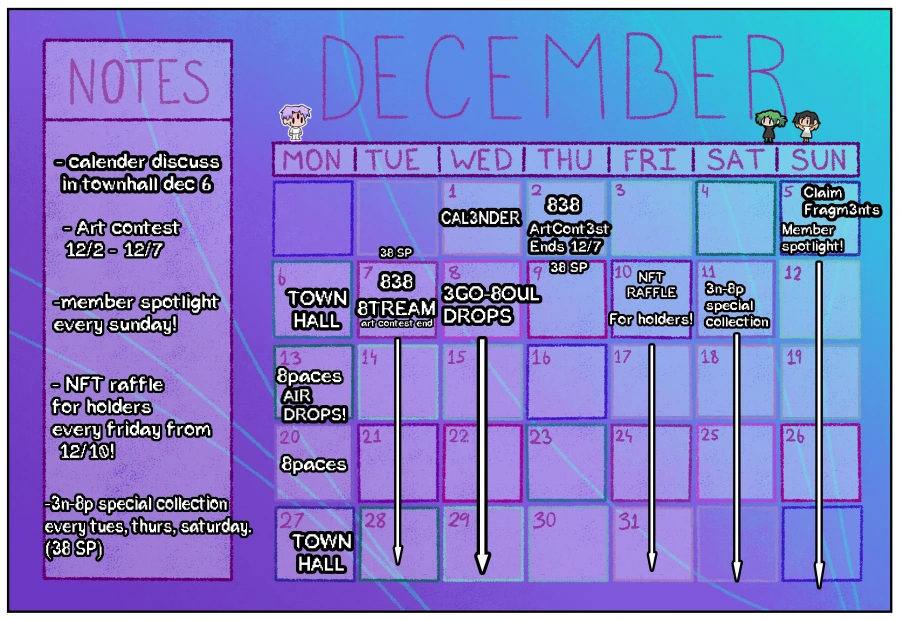 DECEMBER
NOTES
- calender discuss
in townhall dec 6
- Art contest
12/2 - 12/7
-member spotlight
every sunday!
- NFT raffle
for holders
every friday from
12/10!
-3n-8p special collection
every tues, thurs, saturday.
(38 SP)
MON TUE WED THU FRI SAT SUN
1
CAL3NDER
2
838
ArtCont3st
Ends 12/7
3
4
5
Claim
Fragm3nts
Member
spotlight!
6
TOWN
HALL
38 SP
7
838
8TREAM
art contest end
8
3GO-8OUL
DROPS
9
38 SP
10
NFT
RAFFLE
For holders!
11
3n-8p
special
collection
12
13
8paces
AIR
DROPS!
14
15
16
17
18
19
20
8paces
21
22
23
24
25
26
27
TOWN
HALL
28
29
30
31